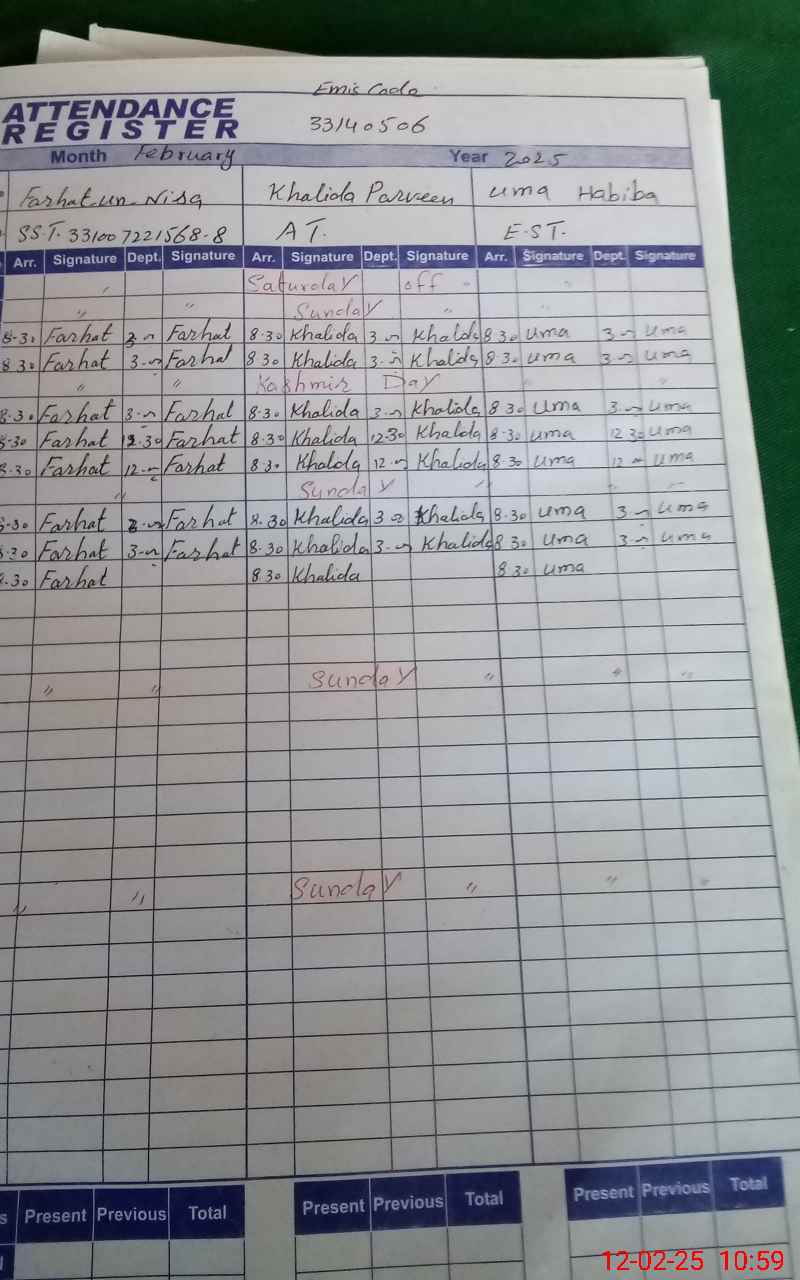 Emis Code
ATTENDANCE
REGISTER
33140506
Month February Year 2025
Farhat un Nisa Khalida Parveen uma Habiba
SS.T. 331007221568-8 AT. E.ST.
Arr. Signature Dept. Signature Arr. Signature Dept. Signature Arr. Signature Dept. Signature
" Saturday off " "
" " Sunday " "
8-30 Farhat 3-~ Farhat 8.30 Khalida 3-~ Khalida 8 30 uma 3-~ uma
8 30 Farhat 3-~ Farhat 8 30 Khalida 3-~ Khalida 8 30 uma 3-~ uma
" " Kashmir Day " "
8-30 Farhat 3-~ Farhat 8-30 Khalida 3-~ Khalida 8 30 uma 3-~ uma
8-30 Farhat 12.30 Farhat 8-30 Khalida 12-30 Khalida 8-30 uma 12 30 uma
8-30 Farhat 12-~ Farhat 8.30 Khalida 12-~ Khalida 8-30 uma 12 ~ uma
" Sunday " " "
8-30 Farhat 3-~ Farhat 8.30 Khalida 3-~ Khalida 8-30 uma 3-~ uma
8-30 Farhat 3-~ Farhat 8-30 Khalida 3-~ Khalida 8 30 uma 3-~ uma
8-30 Farhat 8 30 Khalida 8 30 uma
" " Sunday " " "
" " Sunday " " "
Present Previous Total Present Previous Total Present Previous Total
12-02-25 10:59